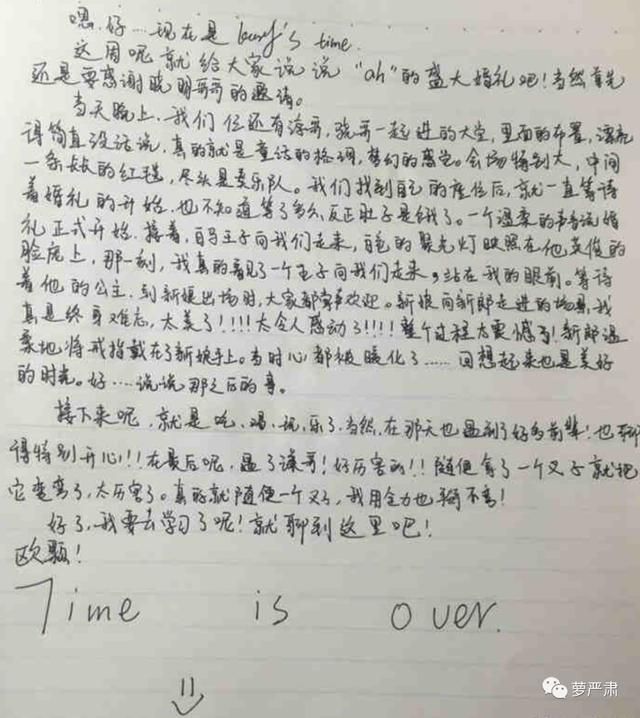 嗯.好....现在是 beny's time.
这周呢就给大家说说“ah”的盛大婚礼吧!当然首先
还是要感谢晓明哥哥的邀请。
当天晚上.我们 还有涛哥,骁哥一起进的大堂,里面的布置,漂亮
得简直没话说,真的就是童话的格调,梦幻的感觉。会场特别大,中间
一条长长的红毯,尽头是奏乐队。我们找到自己的座位后,就一直等待
着婚礼的开始.也不知道等了多久,反正肚子是饿了。一个温柔的声音说婚
礼正式开始.接着,白马王子向我们走来,白色的聚光灯映照在他英俊的
脸庞上,那一刻,我真的看见了一个王子向我们走来,站在我的眼前。等待
着他的公主.到新娘出场时,大家都 欢迎。新娘向新郎走进的场景,我
真是终身难忘,太美了!!!!太令人感动了!!!!整个过程太震憾了!新郎温
柔地将戒指戴在了新娘手上。当时心都被暖化了......回想起来也是美好
的时光。好....说说那之后的事。
接下来呢,就是吃.喝.玩.乐了.当然.在那天也遇到了好多前辈!也聊
得特别开心!!!在最后呢.遇了 哥!好厉害的!!随便拿了一个叉子就把
它变弯了,太厉害了。真的就随便一个叉子,我用全力也掰不弯!
好了,我要去学习了呢!就聊到这里吧!
欧颗!
Time is over.
萝严肃